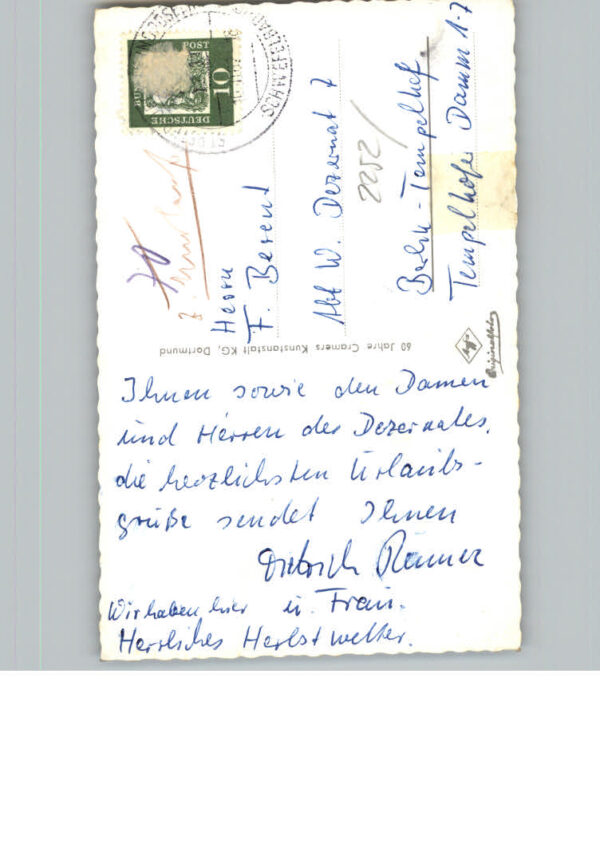 Ihnen sowie den Damen
und Herren des Dezernates,
die herzlichsten Urlaubs-
grüße sendet Ihnen
Dietrich
u. Frau.
Wir haben hier
Herrliches Herbstwetter.
Herrn
F. Berent
Abt W. Dezernat 7
Berlin-Tempelhof.
Tempelhofer Damm 1-7
2252/
60 Jahre Cramers Kunstanstalt KG, Dortmund
Originalfoto
DEUTSCHE
POST
10